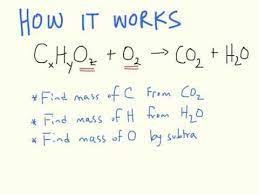 HOW IT WORKS
CxHyOz + O2 → CO2 + H2O
* Find mass of C from CO2
* Find mass of H from H2O
* Find mass of O by subtra